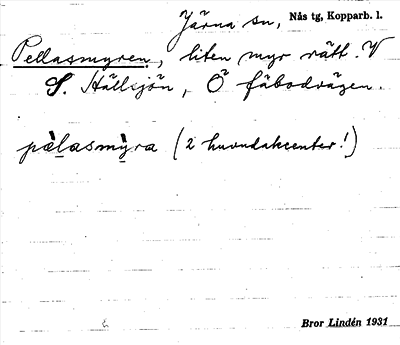 Järna sn, Nås tg, Kopparb. l.
Pellasmyren, liten myr rätt V
S. Hällsjön, Ö fäbodvägen.
pèl̲asmỳ̲ra (2 huvudakcenter!)
Bror Lindén 1931